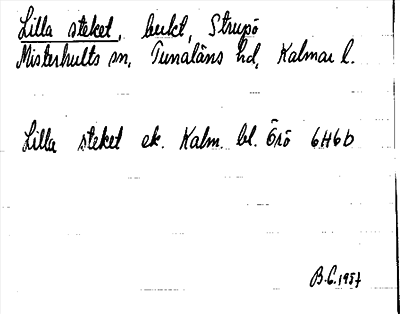 Lilla steket, bukt, Strupö
Misterhults sn, Tunaläns hd, Kalmar l.
Lilla steket ek. Kalm. bl. Örö 6H6b
B.C. 1957